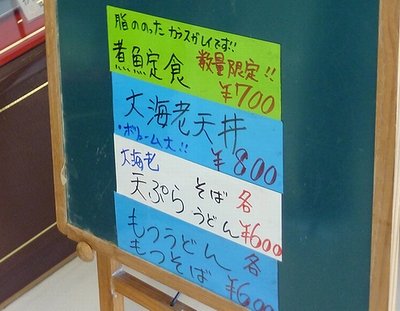 脂ののった カラスガレイです!!
煮魚定食 数量限定!!
¥700
大海老天丼
・ボリューム大!! ¥800
大海老
天ぷら そば 各
うどん ¥600
もつうどん 各
もつそば ¥600